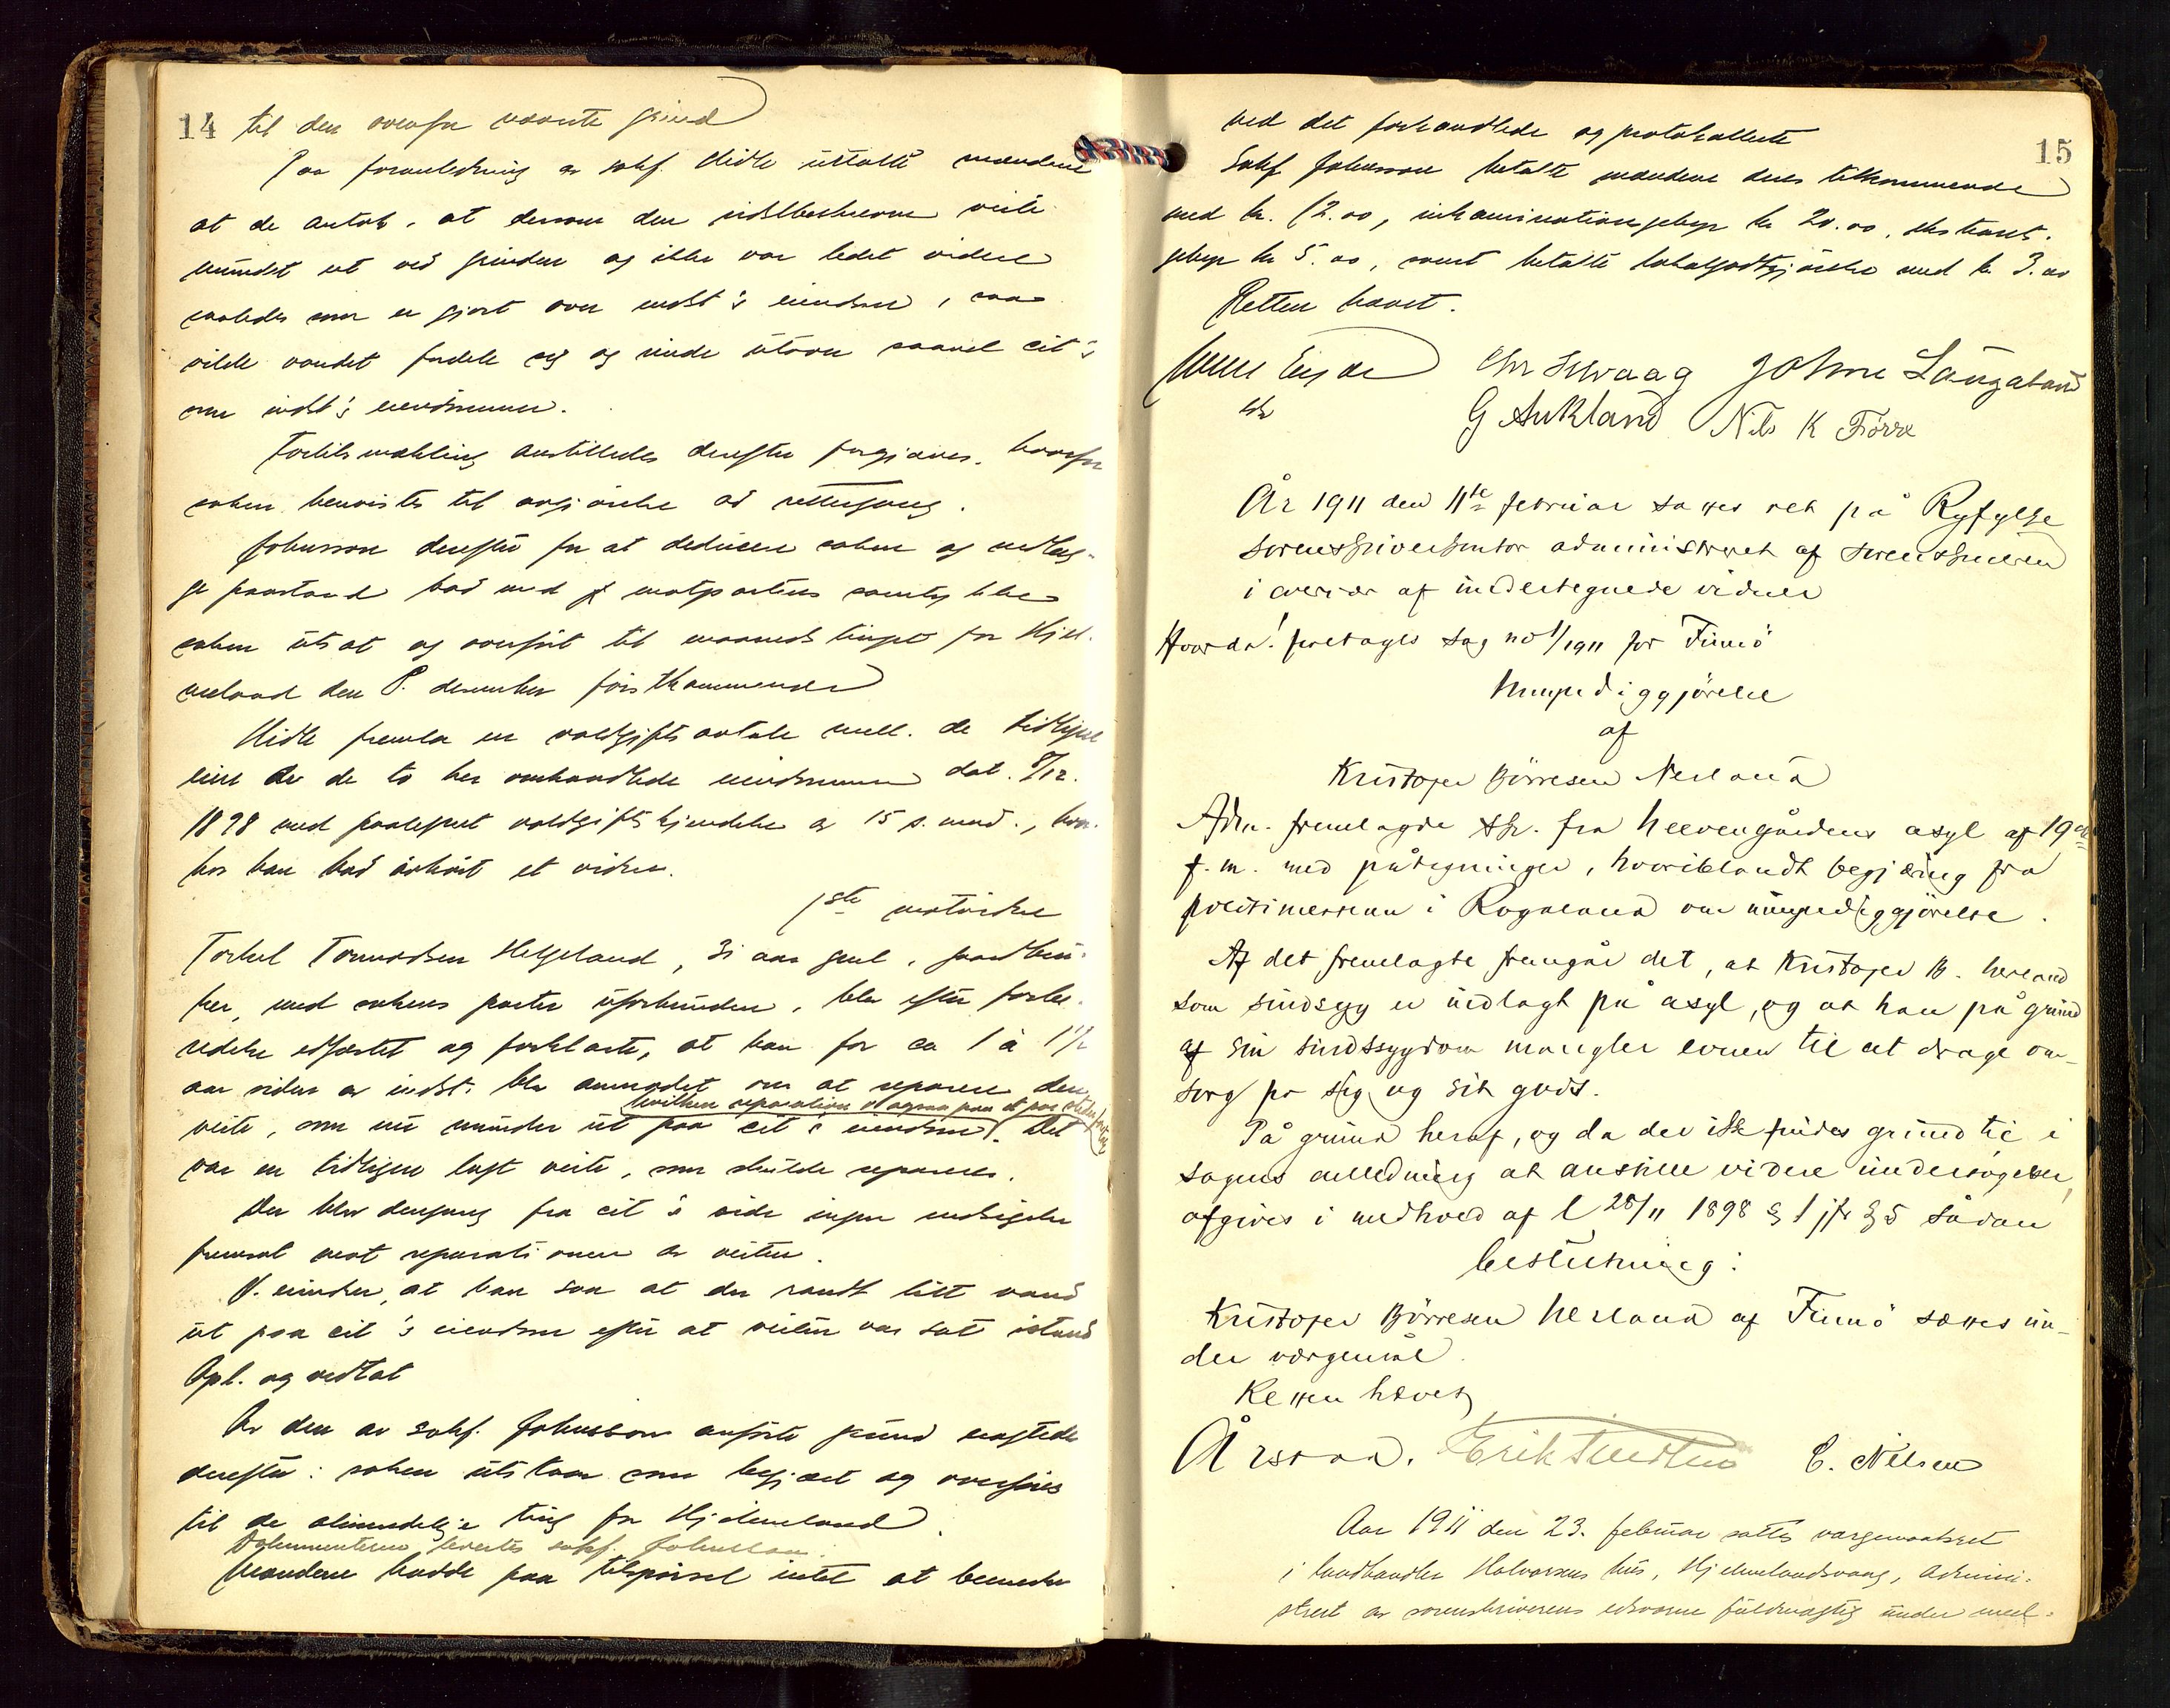 14 til den ovenfor nævnte grind
Paa foranledning av sakf. Midle uttalte mændene
at de antok, at dersom den sidstbeskrevne veite
mundet ut ved grinden og ikke var ledet videre
saaledes som er gjort over indst's eiendom, saa
vilde vandet fordele sig og rinde utover saavel cit's
som indst's eiendommer.
Forliksmækling anstilledes derefter forgjæves, hvorfor
saken henvistes til avgjørelse ad rettergang.
Johnsson derefter for at deducere saken og nedlæg-
ge paastand bad med motpartens samtykke
saken utsat og overført til maanedstinget for Hjel-
meland den 8. desember førstkommende
Midle fremla en voldgiftsavtale mell. de tidligere
eiere av de to her omhandlede eiendommer dat. 8/12.
1898 med paategnet voldgiftskjendelse av 15 s. mnd., hvor-
hos han bad avhørt et vidne.
1ste motvidne
Torkel Tormodsen Helgeland, 31 aar gml., gaardbru-
ker, med sakens parter uforbunden, blev efter forbe-
redelse edfæstet og forklarte, at han for ca 1 à 1 1/2
aar siden av indst. blev anmodet om at reparere den
hvilken reparation ogsaa paa et par steder
veite, som nu munder ut paa cit's eiendom. Det
var en tidligere lagt veite, som skulde repareres.
Der blev dengang fra cit's side ingen indsigelse
fremsat mot reparationen av veiten.
V. mindes, at han saa at der randt litt vand
ut paa cit's eiendom efter at veiten var sat istand
Opl. og vedtat
Av den av sakf. Johnsson anførte grund
derefter: saken utstaar som begjært og overføres
til de almindelige ting for Hjelmeland.
Dokumenterne levertes sakf. Johnsson.
Mændene hadde paa tilspørsel intet at bemerke
15
ved det forhandlede og protokollerte
Sakf Johnsson betalte mændene deres tilkommende
med kr. 12.00, inkaminationsgebyr kr 20.00, ekstraret-
gebyr kr 5.00, samt betalte lokalgodtgjørelse med kr 3.00
Retten hævet.
Chr Selvaag John Langaland
G Aukland Nils K Førre
År 1911 den 11te februar sattes ret på Ryfylke
sorenskriverkontor administreret af sorenskriveren
i overvær af undertegnede vidner
Hvorda! foretages sag no 1/1911 for Finnö
Umyndiggjörelse
af
Kristofer Börresen Nerland
Adm. fremlagde skr. fra asyl af 19de
f. m. med påtegninger, hvoriblandt begjæring fra
politimesteren i Rogaland om umyndiggjörelse.
Af det fremlagte fremgår det, at Kristofer B. Nerland
som sindssyg er indlagt på asyl, og at han på grund
af sin sindssygdom mangler evnen til at drage om-
sorg for sig og sit gods.
På grund heraf, og da der ikke findes grund til i
sagens anledning at anstille videre undersögelser,
afgives i medhold af l 28/11 1898 § 1 jfr § 5 sådan
beslutning:
Kristofer Börresen Nerland af Finnö sættes un-
der værgemål.
Retten hævet
Årstad. Erik C. Nilsen
Aar 1911 den 23. februar sattes værgemaalsret
i landhandler Halvorsens hus, Hjelmelandsvaag, admini-
strert av sorenskriverens edsvorne fuldmægtig under med-